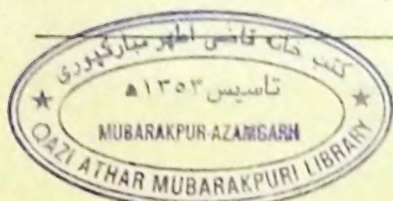 کتب خانه قاضی اطہر مبارکپوری
تاسیس ۱۳۵۳ھ
MUBARAKPUR-AZAMGARH
QAZI ATHAR MUBARAKPURI LIBRARY